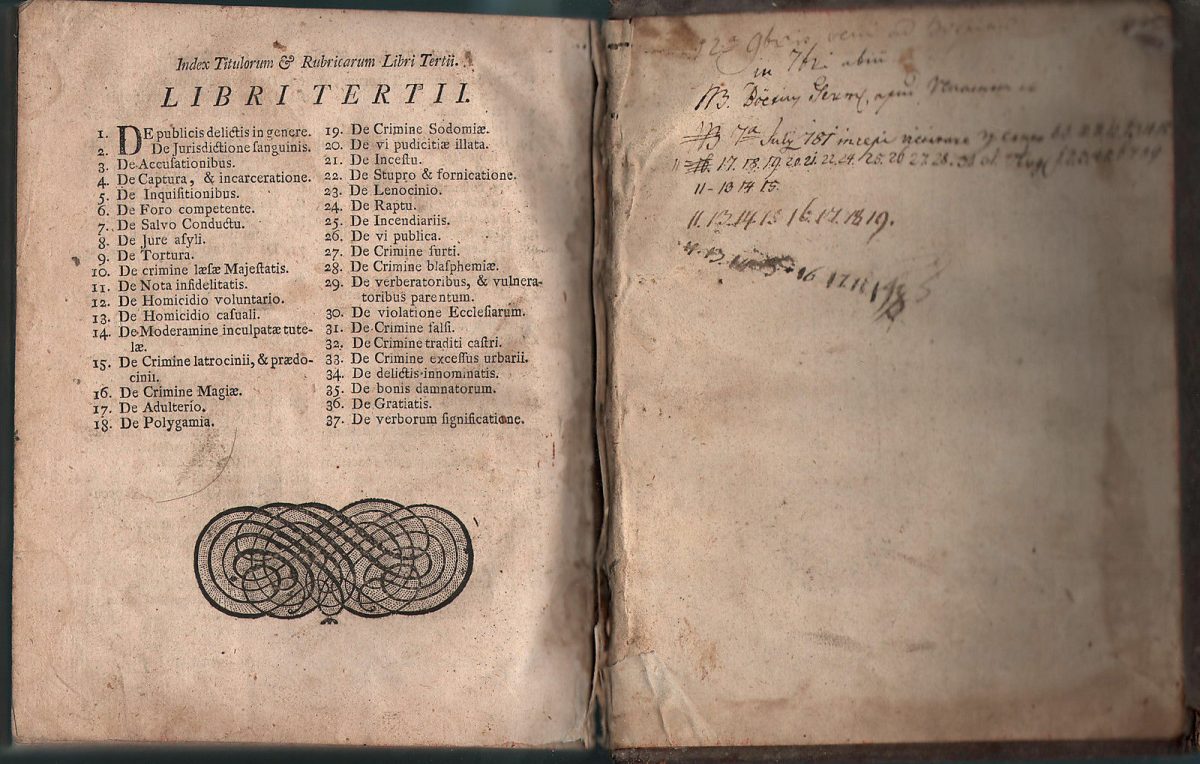 Index Titulorum & Rubricarum Libri Tertii.
LIBRI TERTII.
1. DE publicis delictis in genere.
2. De Jurisdictione sanguinis.
3. De Accusationibus.
4. De Captura, & incarceratione.
5. De Inquisitionibus.
6. De Foro competente.
7. De Salvo Conductu.
8. De Jure asyli.
9. De Tortura.
10. De crimine læsæ Majestatis.
11. De Nota infidelitatis.
12. De Homicidio voluntario.
13. De Homicidio casuali.
14. De Moderamine inculpatæ tute-
læ.
15. De Crimine latrocinii, & prædo-
cinii.
16. De Crimine Magiæ.
17. De Adulterio.
18. De Polygamia.
19. De Crimine Sodomiæ.
20. De vi pudicitiæ illata.
21. De Incestu.
22. De Stupro & fornicatione.
23. De Lenocinio.
24. De Raptu.
25. De Incendiariis.
26. De vi publica.
27. De Crimine furti.
28. De Crimine blasphemiæ.
29. De verberatoribus, & vulnera-
toribus parentum.
30. De violatione Ecclesiarum.
31. De Crimine falsi.
32. De Crimine traditi castri.
33. De Crimine excessus urbarii.
34. De delictis innominatis.
35. De bonis damnatorum.
36. De Gratiatis.
37. De verborum significatione.
9bris veni ad
in 7bri abiii
NB.
7a July incepi
17. 18. 19. 20 21 22 24. 25. 26 27. 28.
11 - 13 14 15.
11. 13. 14 15 16. 17. 18 19.
16 17 18 19